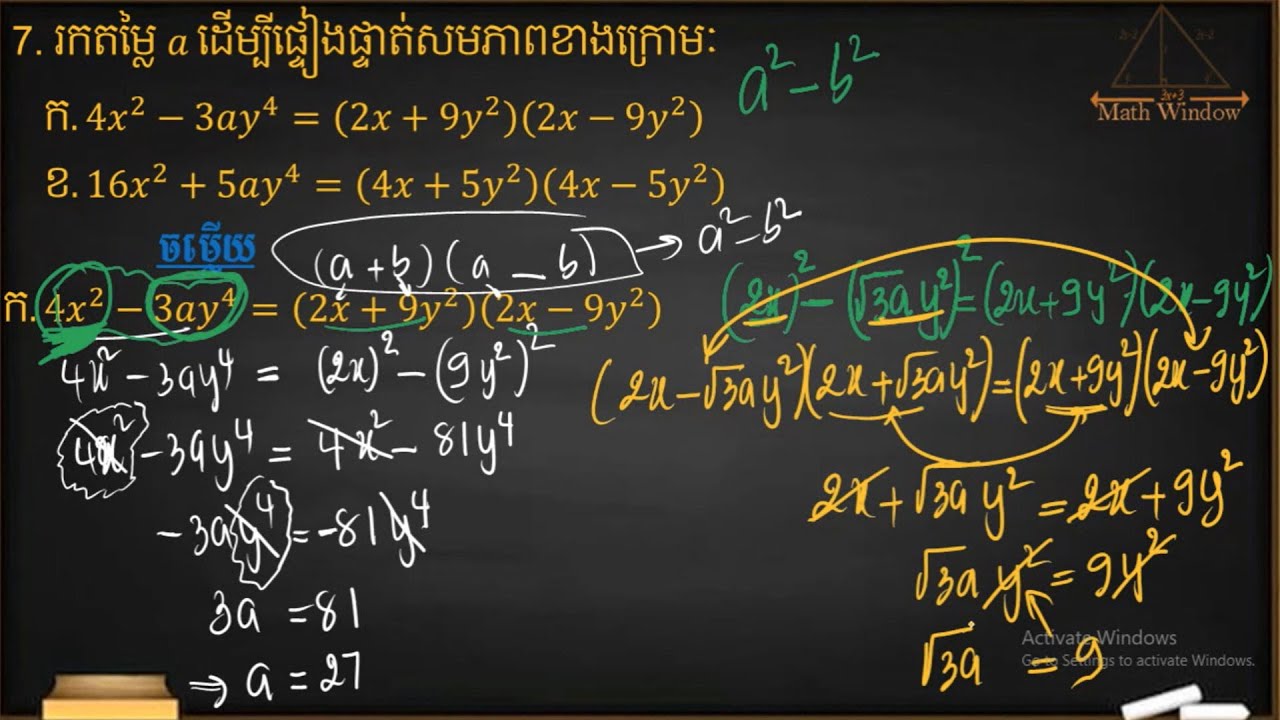 7. រកតម្លៃ a ដើម្បីផ្ទៀងផ្ទាត់សមភាពខាងក្រោមៈ
a² − b²
Math Window
2x-2
2x-2
3x+3
ក. 4x² − 3ay⁴ = (2x + 9y²)(2x − 9y²)
ខ. 16x² + 5ay⁴ = (4x + 5y²)(4x − 5y²)
ចម្លើយ
(a + b)(a − b) → a² − b²
ក. 4x² − 3ay⁴ = (2x + 9y²)(2x − 9y²)
4x² − 3ay⁴ = (2x)² − (9y²)²
4x² − 3ay⁴ = 4x² − 81y⁴
−3ay⁴ = −81y⁴
3a = 81
⇒ a = 27
(2x)² − (√3a y²)² = (2x+9y²)(2x−9y²)
(2x − √3a y²)(2x + √3a y²) = (2x+9y²)(2x−9y²)
2x + √3a y² = 2x + 9y²
√3a y² = 9y²
√3a = 9
Activate Windows
Go to Settings to activate Windows.